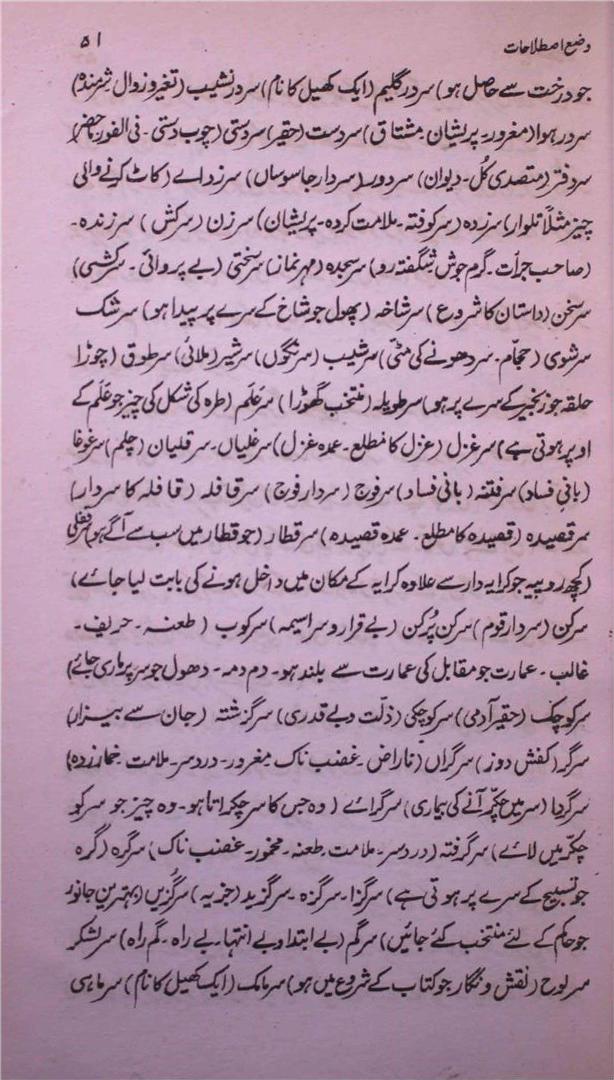 وضع اصطلاحات ۵۱
جو درخت سے حاصل ہو) سر درگلیم (ایک کھیل کا نام) سر در نشیب (تغیر و زوال شرمندہ)
سر در ہوا (مغرور۔ پریشان۔ مشتاق) سردست (حقیر) سردستی (چوب دستی۔ فی الفور۔ حاضر)
سر دفتر (متصدی کُل۔ دیوان) سر دور (سردار جاسوساں) سر زدا ے (کاٹ کرنے والی
چیز مثلاً تلوار) سرزدہ (سرکوفتہ۔ ملامت کردہ۔ پریشان) سرزن (سرکش) سر زندہ۔
(صاحب جرأت۔ گرم جوش شگفتہ رو) سجدہ (مہر نماز) سرسختی (بے پروائی۔ سرکشی)
سرسخن (داستان کا شروع) سر شاخہ (پھول جو شاخ کے سرے پر پیدا ہو) سرشک
سرشوی (حجّام۔ سر دھونے کی مٹی) سر شیب (سرنگوں) سر شیر (ملائی) سر طوق (چوڑا
حلقہ جو زنجیر کے سرے پر ہو) سر طویلہ (منتخب گھوڑا) سر عَلَم (طرہ کی شکل کی چیز جو عَلَم کے
اوپر ہوتی ہے) سر غزل (غزل کا مطلع۔ عمدہ غزل) سر غلیاں۔ سر قلیان (چلم) سر غوغا
(بانی فساد) سر فتنہ (بانی فساد) سر فوج (سردار فوج) سر قافلہ (قافلہ کا سردار)
سر قصیدہ (قصیدہ کا مطلع۔ عمدہ قصیدہ) سر قطار (جو قطار میں سب سے آگے ہو) سر قفلی
(کچھ روپیہ جو کرایہ دار سے علاوہ کرایہ کے مکان میں داخل ہونے کی بابت لیا جائے)
سرکن (سردار قوم) سر کن پُرکن (بے قرار و سراسیمہ) سرکوب (طعنہ۔ حریف۔
غالب۔ عمارت جو مقابل کی عمارت سے بلند ہو۔ دم دمہ۔ دھول جو سر پر ماری جائے)
سر کوچک (حقیر آدمی) سر کوچکی (ذلّت و بے قدری) سر گزشتہ (جان سے بیزار)
سرگر (کفش دوز) سرگراں (ناراض۔ غضب ناک مغرور۔ درد سر۔ ملامت خمار زدہ)
سرگردا (سر میں چکّر آنے کی بیماری) سر گراے (وہ جس کا سر چکراتا ہو۔ وہ چیز جو سر کو
چکّر میں لائے) سر گرفتہ (درد سر۔ ملامت۔ طعنہ۔ مخمور۔ غضب ناک) سر گرہ (گرہ
جو تسبیح کے سرے پر ہوتی ہے) سر گزا۔ سر گزہ۔ سر گزید (جزیہ) سر گُزیں (بہترین جانور
جو حاکم کے لئے منتخب کئے جائیں) سرگم (بے ابتدا و بے انتہا۔ بے راہ۔ گم راہ) سر لشکر
سر لوح (نقش و نگار جو کتاب کے شروع میں ہو) سر مامک (ایک کھیل کا نام) سر ماہی